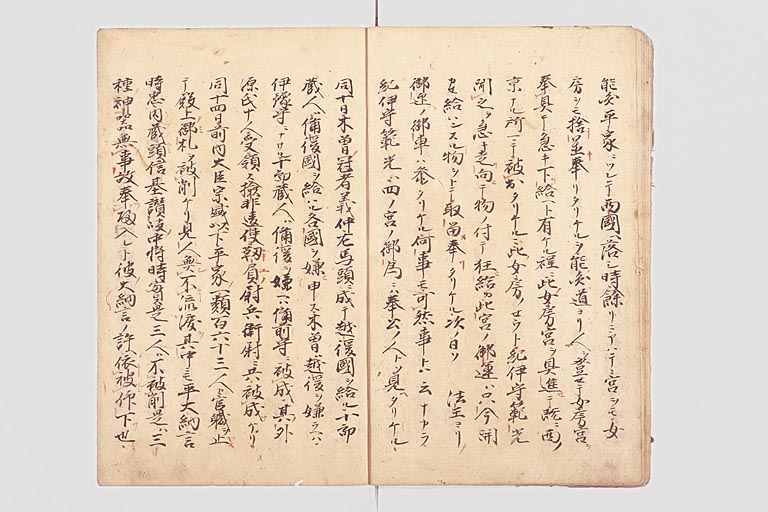 能円平家ニツレテ西國ヘ落シ時餘リニアハテテ宮ヲモ女
房ヲモ捨置奉リタリケルヲ能円道ヨリ人ヲ登セテ女房宮
奉具テ急キ下給ヘト有ケル程ニ此女房宮ヲ具進テ既ニ西ノ
京ナル所マテ被出タリケルニ此女房ノセウト紀伊守範光
聞之ヲ急走向テ物ノ付テ狂給カ此宮ノ御運ハ只今開
サ給ハンスル物ヲトテ取留奉タリケル次日ソ 法皇ヨリ
御迎ノ御車ハ参タリケル何事モ可然事ト云ナカラ
紀伊守範光ハ四ノ宮ノ御為ニハ奉公ノ人トソ見タリケル
同十日木曽冠者義仲左馬頭ニ成テ越後國ヲ給ハル十郎
蔵人ハ備後國ヲ給ハル各國ヲ嫌申ス木曽越後ヲ嫌ラヘハ
伊豫守ニナリヌ十郎蔵人ハ備後ヲ嫌ヘハ備前守ニ被成ヌ其外
源氏十人受領ヲ撿非違使靱負尉兵衛尉ニ被成ケリ
同十四日前内大臣宗盛以下平家一類百六十三人官職ヲ止
テ殿上御札ヲ被削ケリ見人無不流涙其中ニモ平大納言
時忠内蔵頭信基讃岐中将時實是三人ハ不被削是ハ三
種神器無事故奉返入レト彼大納言ノ許ヘ依被仰下也